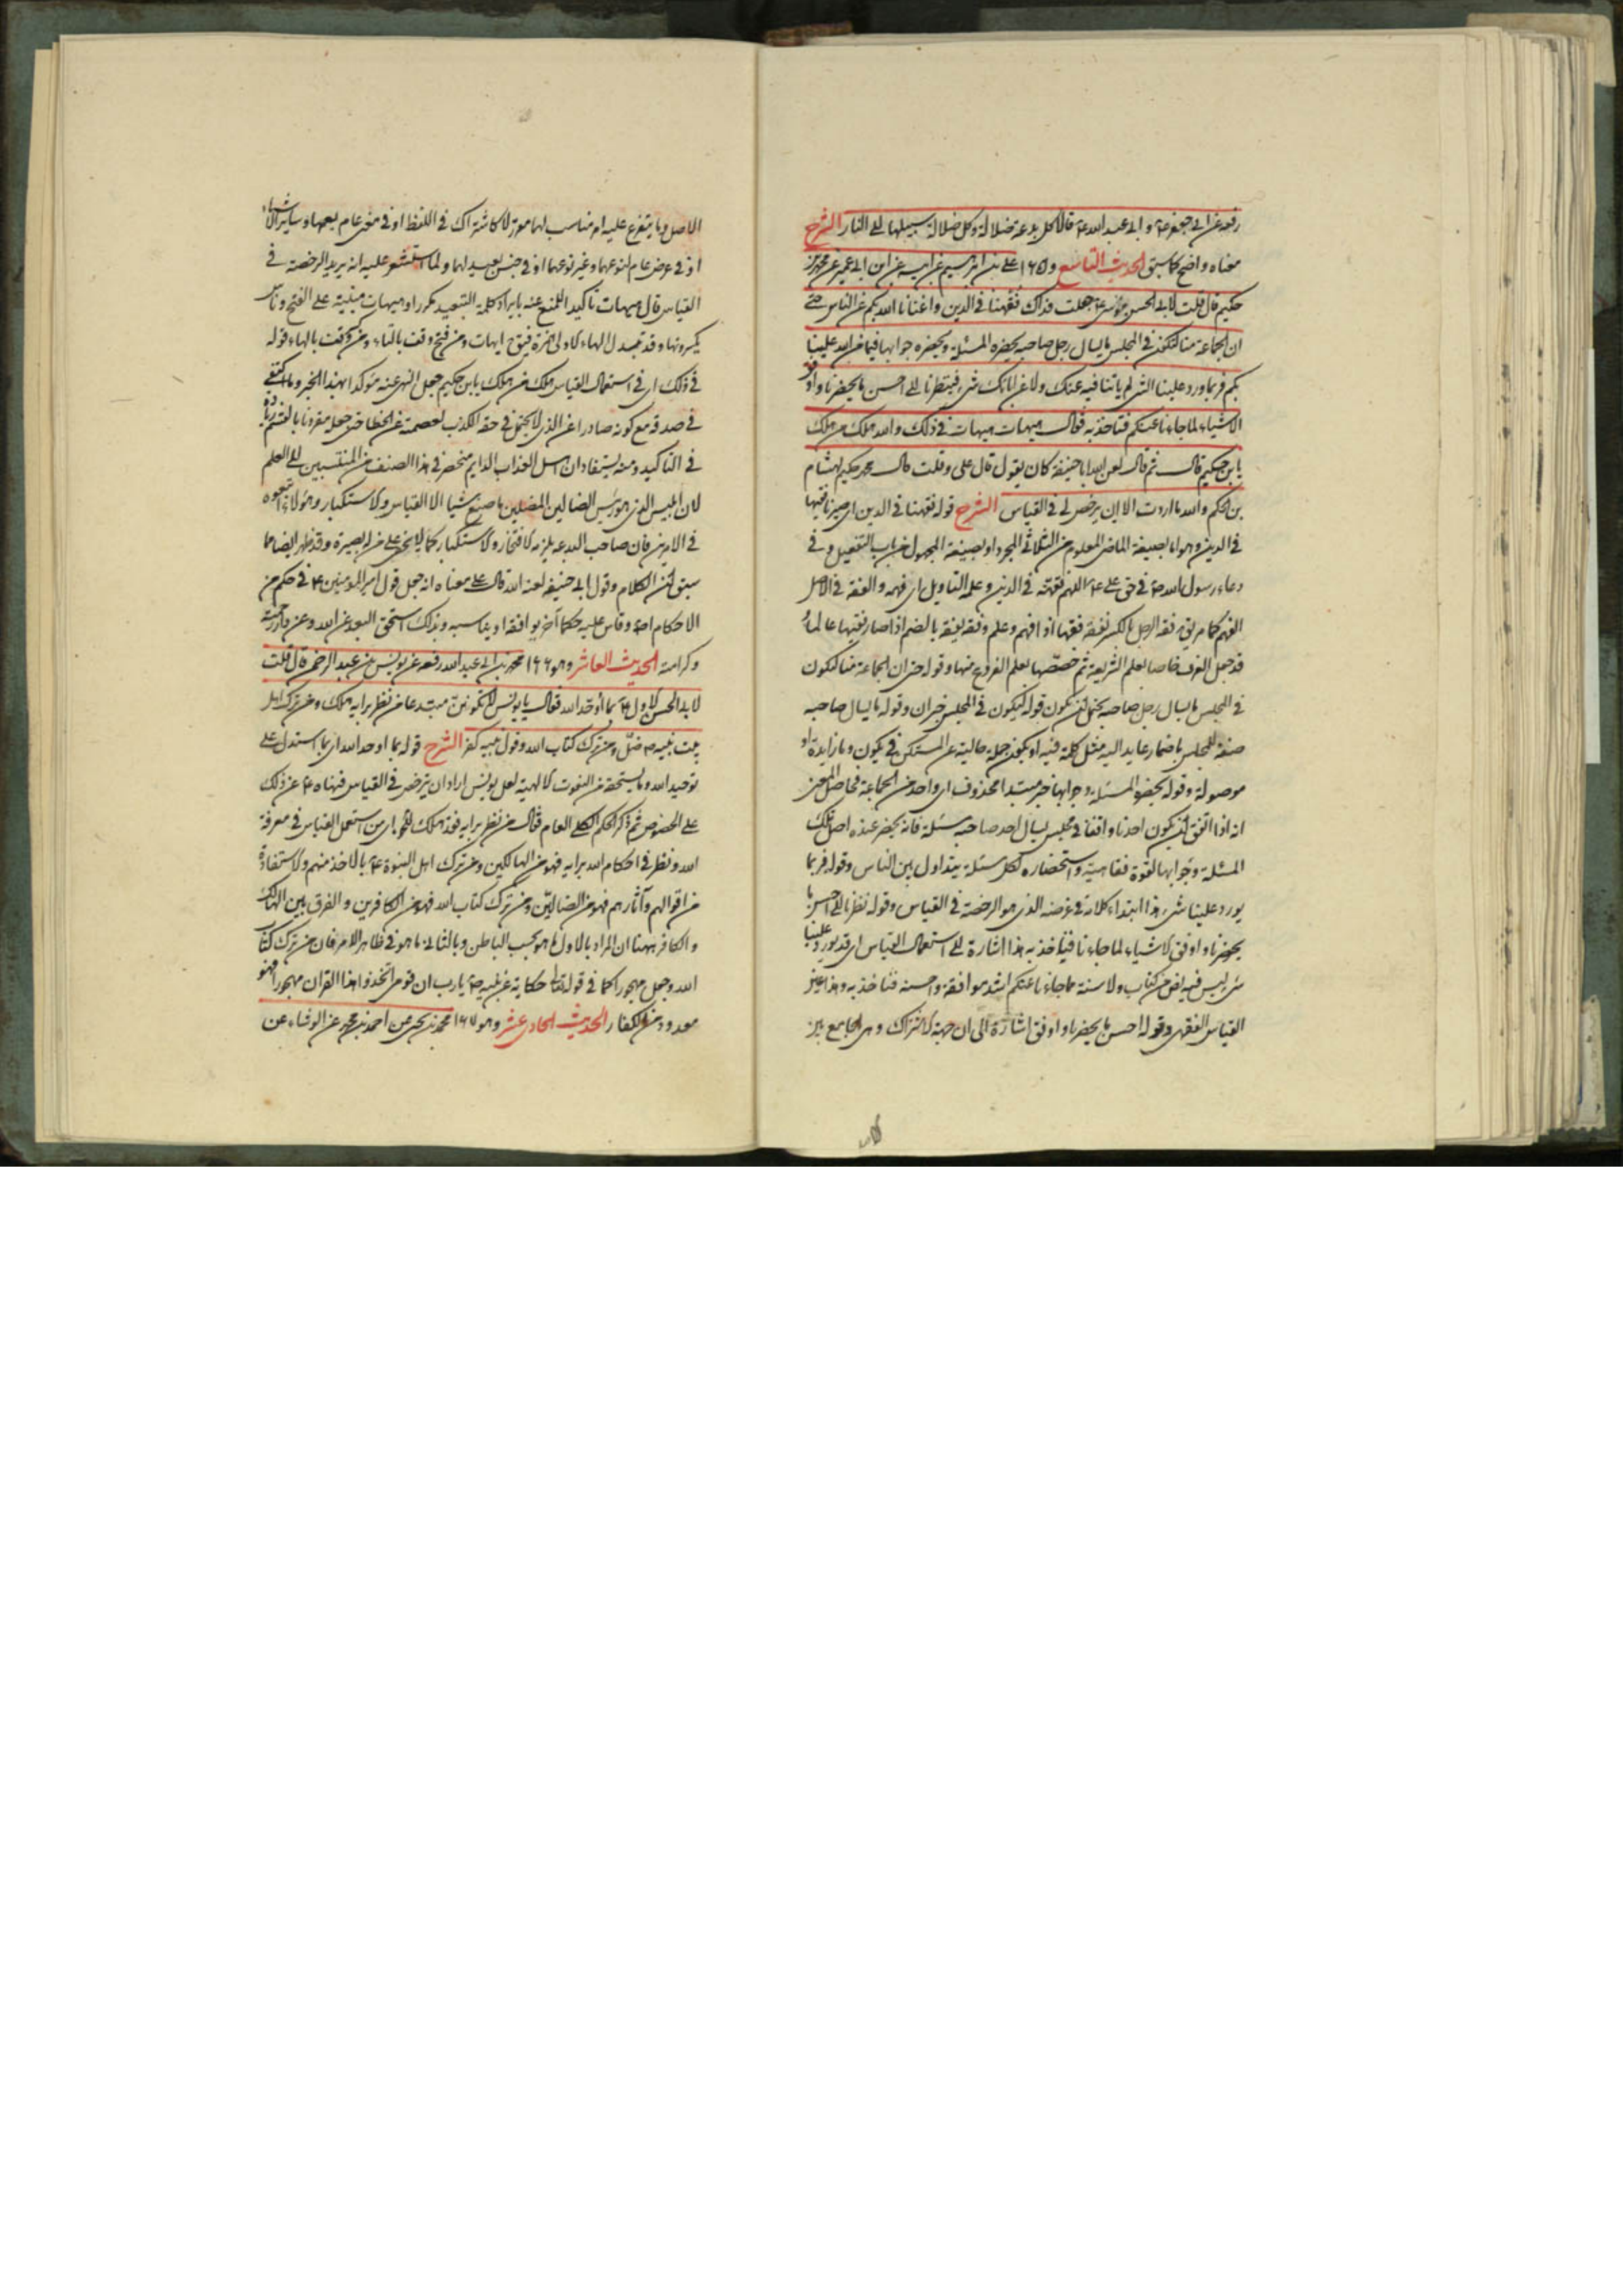 رفعه عن ابى جعفر ع و ابى عبد الله ع قالا كل بدعة ضلالة وكل ضلالة سبيلها الى النار الشرح
معناه واضح كما سبق الحديث التاسع و ١٦٥ على بن ابراهيم عن ابيه عن ابن ابى عمير عن محمد بن
حكيم قال قلت لابى الحسن موسى ع جعلت فداك فقهنا فى الدين واغنانا الله بكم عن الناس حتى
ان الجماعة منا لتكون فى المجلس ما يسال رجل صاحبه يحضره المسئلة ويحضره جوابها فيما من الله علينا
بكم فربما ورد علينا الشى لم ياتنا فيه عنك ولا عن ابائك شى فنظرنا الى احسن ما يحضرنا واوفق
الاشياء لما جاءنا عنكم فناخذ به فقال هيهات هيهات فى ذلك والله هلك من هلك
يا بن حكيم قال ثم قال لعن الله ابا حنيفة كان يقول قال على وقلت قال محمد بن حكيم لهشام
بن الحكم والله ما اردت الا ان يرخص لى فى القياس الشرح قوله فقهنا فى الدين اى صيرنا فقيها
فى الدين وهو اما بصيغة الماضى المعلوم من الثلاثى المجرد او بصيغة المجهول من باب التفعيل وفى
دعاء رسول الله ص فى حق على ع اللهم فقهه فى الدين وعلمه التاويل اى فهمه والفقه فى الاصل
الفهم كما مر يق فقه الرجل بالكسر يفقه فقها اذا فهم وعلم وفقه يفقه بالضم اذا صار فقيها عالما و
قد جعل العرف خاصا بعلم الشريعة ثم خصصها بعلم الفروع منها وقوله حتى ان الجماعة منا لتكون
فى المجلس ما يسال رجل صاحبه يحتمل ان يكون قوله لتكون فى المجلس خبر ان وقوله ما يسال صاحبه
صفة للمجلس باضمار عايد اليه مثل كلمة فيه او يكون جملة حالية عن المستكن فى يكون وما زايدة او
موصولة وقوله يحضره المسئلة وجوابها خبر مبتدا محذوف اى واحد من الجماعة فحاصل المعنى
انه اذا اتفق ان يكون احدنا واقفا فى مجلس يسال احد صاحبه مسئلة فانه يحضر عنده اصل تلك
المسئلة وجوابها لقوة فقاهيته واستحضاره لكل مسئلة يتداول بين الناس وقوله فربما
يورد علينا شى هذا ابتداء كلامه فى غرضه الذى هو الرخصة فى القياس وقوله نظرنا الى احسن ما
يحضرنا واوفق الاشياء لما جاءنا فناخذ به هذا اشارة الى استعمال القياس اى قد يورد علينا
شى ليس فيه نص من كتاب ولا سنة مما جاءنا عنكم اشد موافقة واحسنه فناخذ به وهذا عين
القياس الفقهى وقوله احسن ما يحضرنا واوفق اشارة الى ان جهة الاشتراك وهى الجامع بين
الاصل وما يتفرع عليه امر مناسب لهما مؤثر لا كاشتراك فى اللفظ او فى معنى عام يعمهما وساير الاشياء
او فى عرض عام لنوعهما وغير نوعهما او فى جنس بعيد لهما ولما استشعر عليه انه يريد الرخصة فى
القياس قال هيهات تاكيدا للمنع عنه بايراد كلمة التبعيد مكررا وهيهات مبنية على الفتح وناس
يكسرونها وقد تبدل الهاء الاولى همزة فيق ايهات ومن فتح وقف بالتاء ومن كسر وقف بالهاء قوله
فى ذلك اى فى استعمال القياس هلك من هلك يا بن حكيم جعل النهى عنه مؤكدا بهذا الخبر وما اكتفى
فى صدقه مع كونه صادرا عن الذى لا يحتمل فى حقه الكذب لعصمته عن الخطا حتى جعل مقرونا بالقسم زيادة
فى التاكيد ومنه يستفاد ان اهل العذاب الدايم منحصر فى هذا الصنف من المنتسبين الى العلم
لان ابليس الذى هو رئيس الضالين المضلين ما صنع شيا الا القياس والاستكبار وهؤلاء اتبعوه
فى الامرين فان صاحب البدعة يلزمه الافتخار والاستكبار كما لا يخفى على من له بصيرة وقد ظهر ايضا مما
سبق من الكلام وقول ابى حنيفة لعنه الله قال على معناه انه جعل قول امير المؤمنين ع فى حكم من
الاحكام اصلا وقاس عليه حكما آخر يوافقه او يناسبه وبذلك استحق البعد عن الله وعن دار رحمته
وكرامته الحديث العاشر وهو ١٦٦ محمد بن ابى عبد الله رفعه عن يونس بن عبد الرحمن قال قلت
لابى الحسن الاول ع بما اوحد الله فقال يا يونس لا تكونن مبتدعا من نظر برايه هلك ومن ترك اهل
بيت نبيه ص ضل ومن ترك كتاب الله وقول نبيه كفر الشرح قوله بما اوحد الله اى بما استدل على
توحيد الله وما يستحقه من النعوت الالهية لعل يونس اراد ان يترخص فى القياس فنهاه ع عن ذلك
على الخصوص ثم ذكر الحكم الكلى العام فقال من نظر برايه فقد هلك اى من استعمل القياس فى معرفة
الله ونظر فى احكام الله برايه فهو من الهالكين ومن ترك اهل النبوة ع بالاخذ منهم والاستفادة
من اقوالهم وآثارهم فهو من الضالين ومن ترك كتاب الله فهو من الكافرين والفرق بين الهالك
والكافر ههنا ان المراد بالاول ما هو بحسب الباطن وبالثانى ما هو فى ظاهر الامر فان من ترك كتاب
الله وجعل مهجورا كما فى قوله تعالى حكاية عن نبيه ص يا رب ان قومى اتخذوا هذا القران مهجورا فهو
معدود من الكفار الحديث الحادى عشر وهو ١٦٧ محمد بن يحيى عن احمد بن محمد عن الوشاء عن